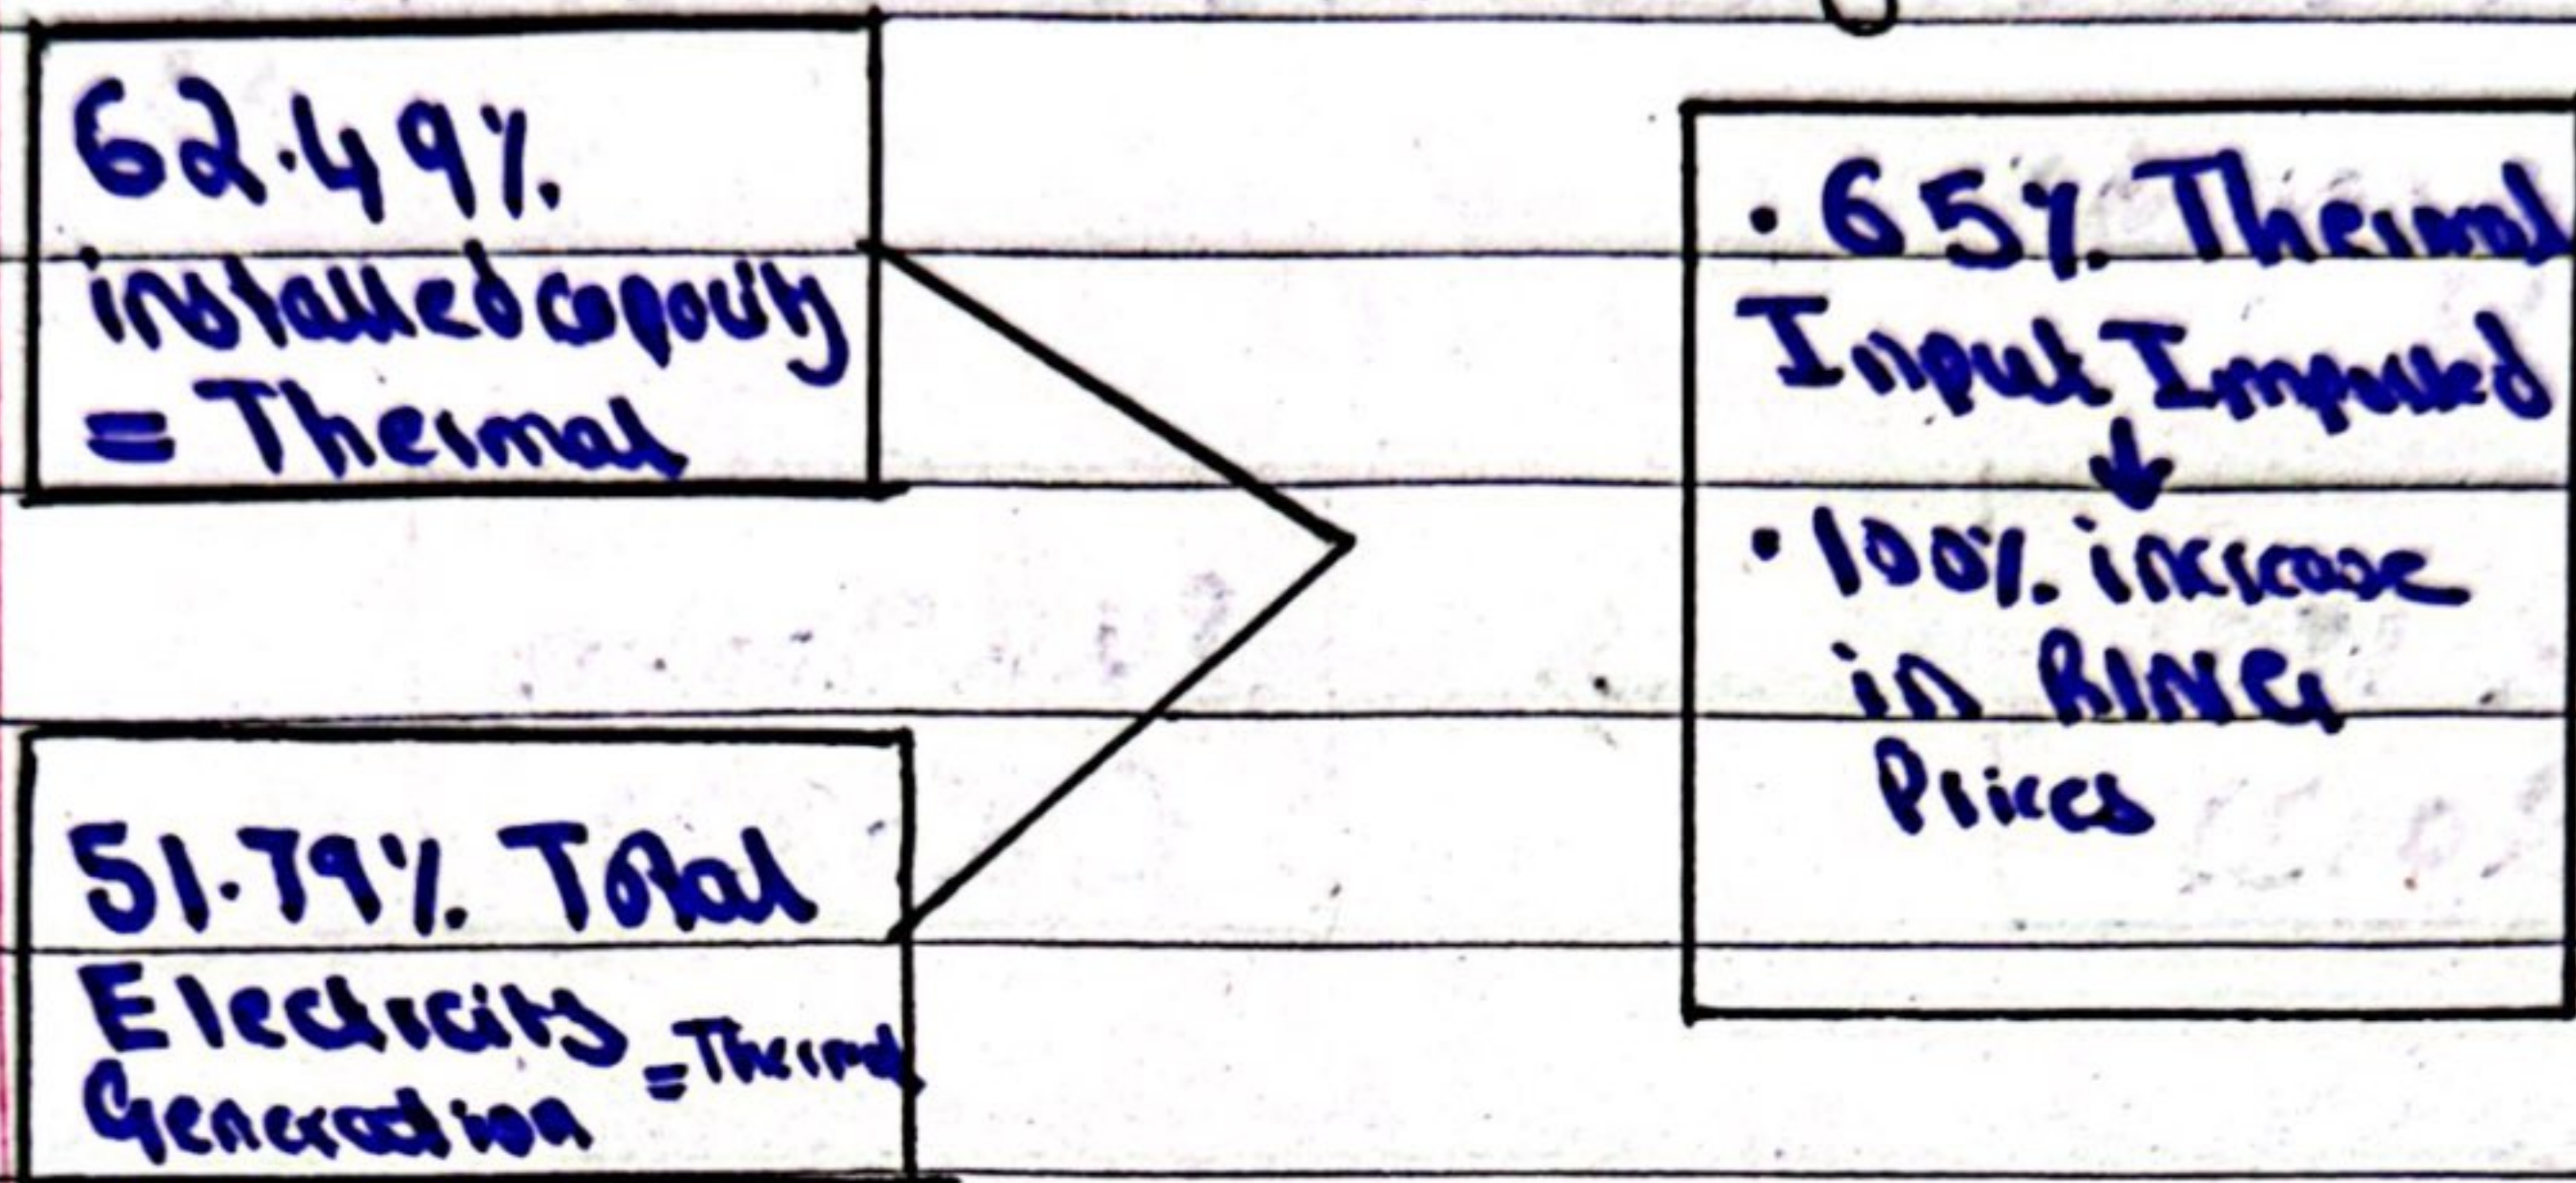 62.49%
installed capacity
= Thermal
51.79% Total
Electricity = Thermal
Generation
· 65% Thermal
Input Imported
↓
· 100% increase
in RLNG
Prices